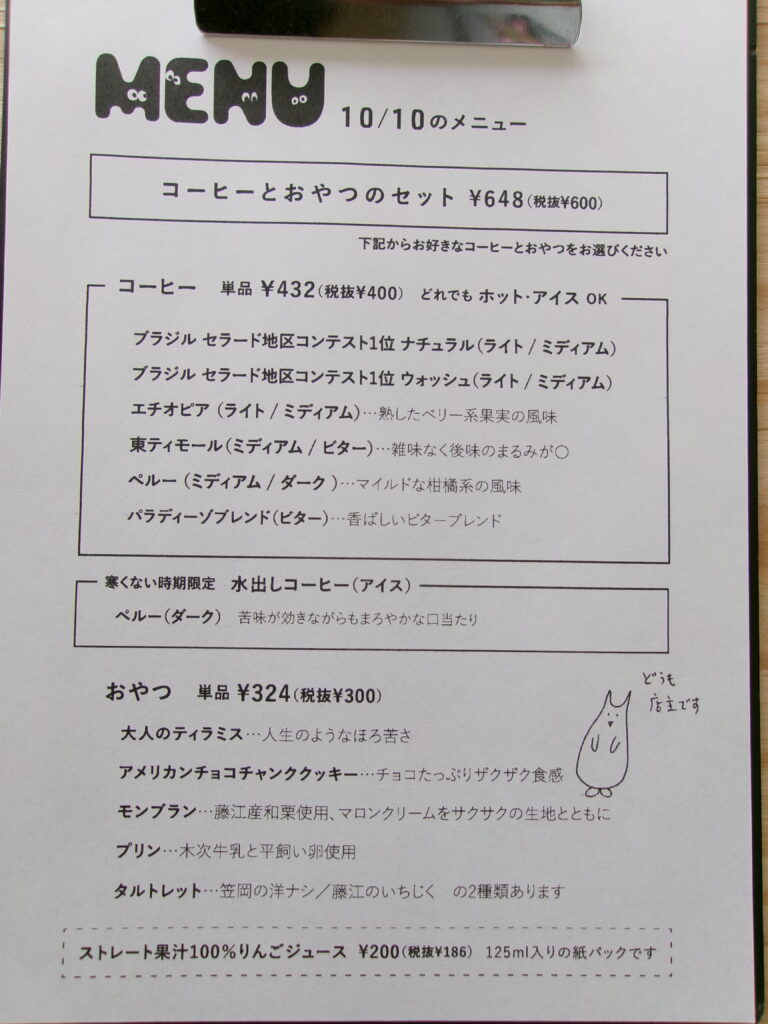 MENU 10/10のメニュー
コーヒーとおやつのセット ¥648(税抜¥600)
下記からお好きなコーヒーとおやつをお選びください
コーヒー 単品 ¥432(税抜¥400) どれでも ホット・アイス OK
ブラジル セラード地区コンテスト1位 ナチュラル(ライト / ミディアム)
ブラジル セラード地区コンテスト1位 ウォッシュ(ライト / ミディアム)
エチオピア (ライト / ミディアム)…熟したベリー系果実の風味
東ティモール(ミディアム / ビター)…雑味なく後味のまるみが〇
ペルー (ミディアム / ダーク )…マイルドな柑橘系の風味
パラディーゾブレンド(ビター)…香ばしいビターブレンド
寒くない時期限定 水出しコーヒー(アイス)
ペルー(ダーク) 苦味が効きながらもまろやかな口当たり
おやつ 単品 ¥324(税抜¥300)
どうも
店主です
大人のティラミス…人生のようなほろ苦さ
アメリカンチョコチャンククッキー…チョコたっぷりザクザク食感
モンブラン…藤江産和栗使用、マロンクリームをサクサクの生地とともに
プリン…木次牛乳と平飼い卵使用
タルトレット…笠岡の洋ナシ／藤江のいちじく の2種類あります
ストレート果汁100%りんごジュース ¥200(税抜¥186) 125ml入りの紙パックです